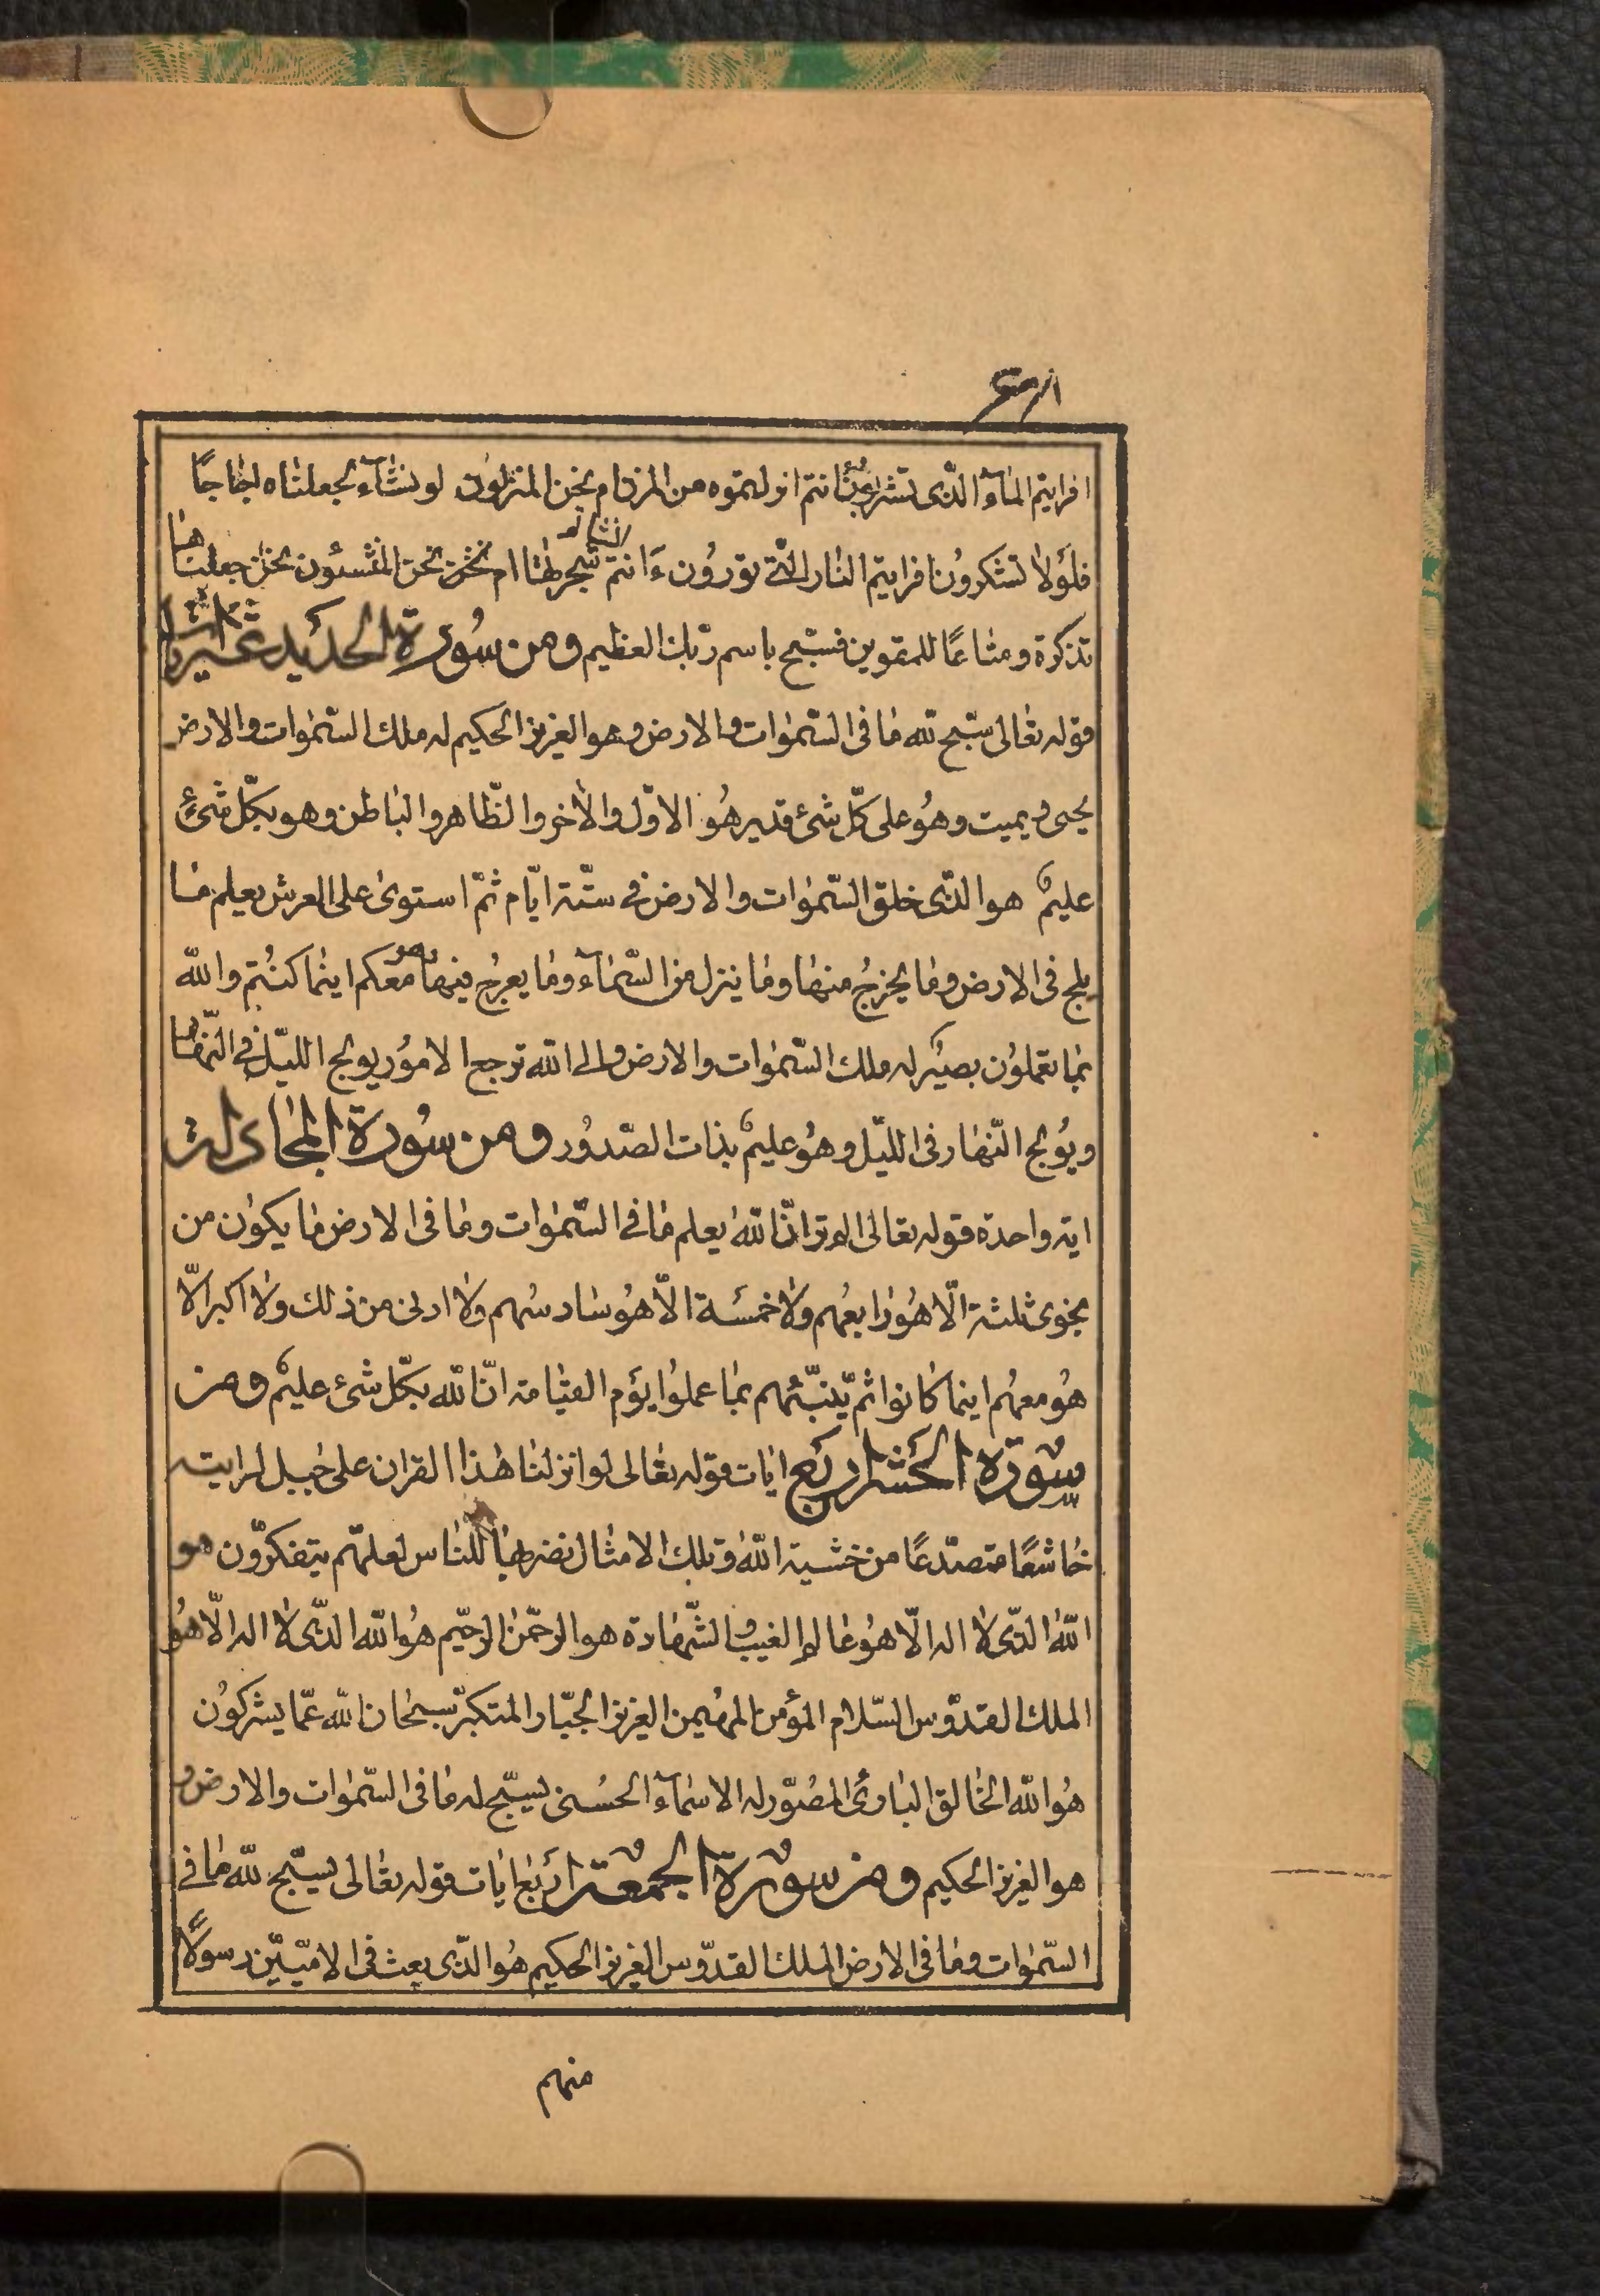 افرايتم المآء الذّى تشربون ءانتم انزلتموه من المزن ام نحن المنزلون لو نشآء لجعلناه اجاجًا
فلولا تشكرون افرايتم النار الّتى تورون ءَانتم انشاتم شجرتها ام نحن المنشئون نحن جعلناها
تذكرة و متاعًا للمقوين فسبّح باسم ربّك العظيم ومن سورة الحديد
قوله تعالى سبّح لله ما فى السّمٰوات والارض وهو العزيز الحكيم له ملك السّمٰوات والارض
يحيى ويميت وهُو على كلّ شئ قدير هُو الاوّل والاٰخر والظّاهر والباطن وهو بكلّ شئٍ
عليمٌ هو الذّى خلق السّمٰوات والارض فى ستّة ايّام ثمّ استوىٰ على العرش يعلم ما
يلج فى الارض وما يخرجُ منها وما ينزل من السّمآء وما يعرج فيها وهو معكم اينما كنتُم والله
بما تعملوُن بصيرٌ له ملك السّمٰوات والارض والى الله ترجع الامُور يولج الليّل فى النّهار
ويُولج النّهار فى الليّل وهُو عليمٌ بذات الصّدُور ومن سُورة المجادلة
اية واحدة قوله تعالى الم تر انّ اللهَ يعلم ما فى السّمٰوات وما فى الارض ما يكون من
نجوى ثلثة الّا هُو رابعُهم ولا خمسَة الّا هُو سادسُهم ولا ادنى من ذلك ولا اكبر الّا
هُو معهُم اينما كانوا ثم يّنبّئهُم بما عملوُا يوَم القيامة انّ الله بكّل شئ عليمٌ ومن
سورة الحشر اربع ايات قوله تعالى لو انزلنا هٰذا القران على جبل لرايته
خاشعًا متصدّعًا من خشية الله وتلك الامثال نضربها للنّاس لعلهّم يتفكرّون هو
اللهُ الذّى لا اله الّا هُو عالم الغيب والشّهادة هو الرحمّن الرحيّم هُو الله الذّى لا اله الّا هُو
الملك القدّوس السّلام المؤمن المهُيمن العزيز الجبّار المتكبرّ سبحان الله عمّا يشركوُن
هُو الله الخالق البارئ المصُوّر له الاسمآء الحُسنى يسبّح له ما فى السّمٰوات والارض و
هو العزيز الحكيم ومن سورة الجمعة اربَع ايات قوله تعالى يسبّح لله ما فى
السّمٰوات وما فى الارض الملك القدّوس العزيز الحكيم هُو الذّى بعث فى الامّيّين رسولًا
منهم